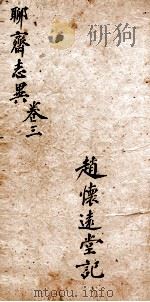 聊齋志異
卷三
趙懷遠堂記